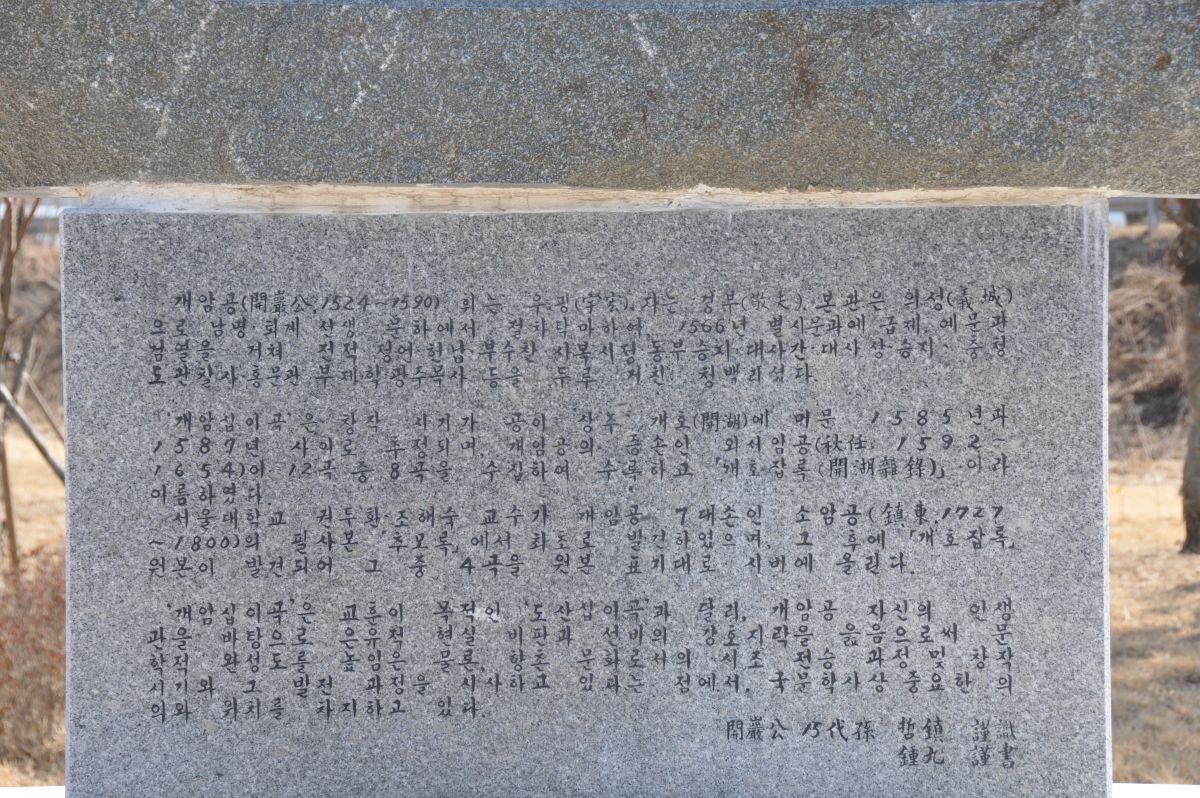 개암공(開巖公, 1524~1590) 휘는 우굉(宇宏), 자는 경부(敬夫), 본관은 의성(義城)
으로 남명 퇴계 선생 문하에서 정차탁마하여, 1566년 별시문과에 급제, 예문관
검열을 거쳐 전적 정언 헌납 부수찬 사복시정 동부승지 대사간·대사성 승지 충청
도관찰사 홍문관 부제학 광주목사 등을 두루 거친 청백리셨다.
'개암십이곡'은 창작 시기가 공이 상주 개호(開湖)에 머문 1585년과
1587년 사이로 추정되며, 개암공의 증손인 외서암공(秋任: 1592~
1654)이 12곡 중 8곡을 수집하여 수록하고 「개호잡록(開湖雜錄)」이라
이름하였다.
서울대학교 권두환·조해숙 교수가 개암공 7대손인 소암공(鎭東, 1727
~1801)의 필사본 '추모록'에서 최초로 발견하였으며, 그 후에 「개호잡록」
원본이 발견되어 그 중 4곡을 원본 표기대로 시비에 올린다.
'개암십이곡'은 교훈이 목적인 '도산십이곡'과 달리, 개암공 자신의 인생
관을 바탕으로 은유적 현실 비파와 선바의 강호지락을 읊음으로써 문
학적 와 성도를 높인 물론, 향촌 문화로서 의 시조 전승과정 및 창작
시기와 그 발전 임은을 시사하고 있는 점에서, 국문학사상 중요한 의
의와 위치를 차지하고 있다.
開巖公 15代孫 哲鎭 謹識
鍾九 謹書